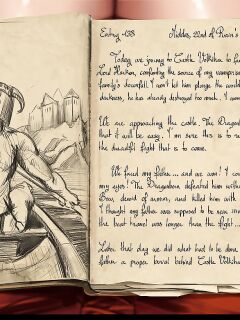 Entry -138
Middas, 22nd of Rain's
Today we journey to Castle Volkihar to
Lord Harkon, confronting the source of my vampiric
family's downfall. I won't let him plunge the world
darkness, he has already destroyed too much. I
We are approaching the castle. The Dragonborn
that it will be easy. I'm sure this is to
the dreadful fight that is to come.
We faced my father... and we won! I
my eyes! The Dragonborn defeated him with
Bow, devoid of armor, and killed him with
I thought my father was supposed to be
the boat travel was longer than the fight...
Later that day we did what had to be done
father a proper burial behind Castle Volkihar